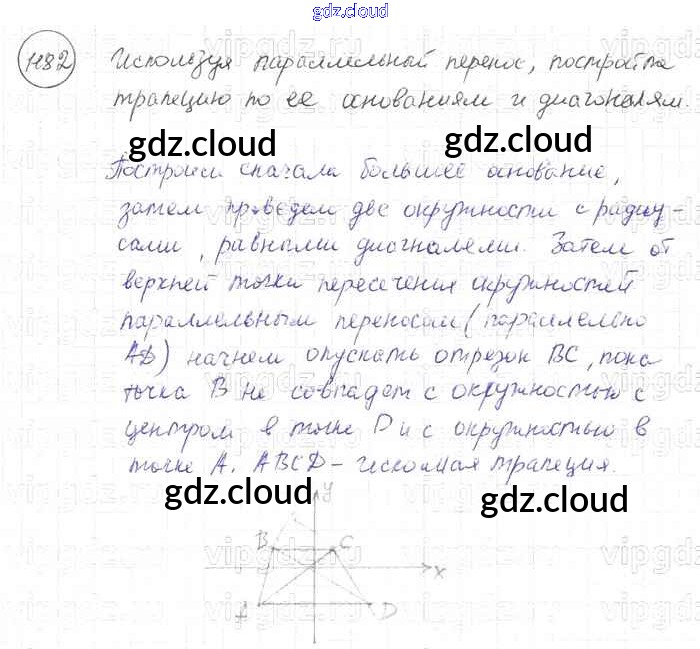 gdz.cloud
1182 Используя параллельный перенос, постройте
трапецию по ее основаниям и диагоналям.
gdz.cloud
gdz.cloud
Построим сначала большее основание,
затем проведем две окружности с радиу-
сами, равными диагналями. Затем от
верхней точки пересечения окружностей
параллельным переносом (параллельно
AD) начнем опускать отрезок BC, пока
точка B не совпадет с окружностью с
центром в точке D и с окружностью в
точке A. ABCD - искомая трапеция.
gdz.cloud
gdz.cloud
y
B C
x
A D